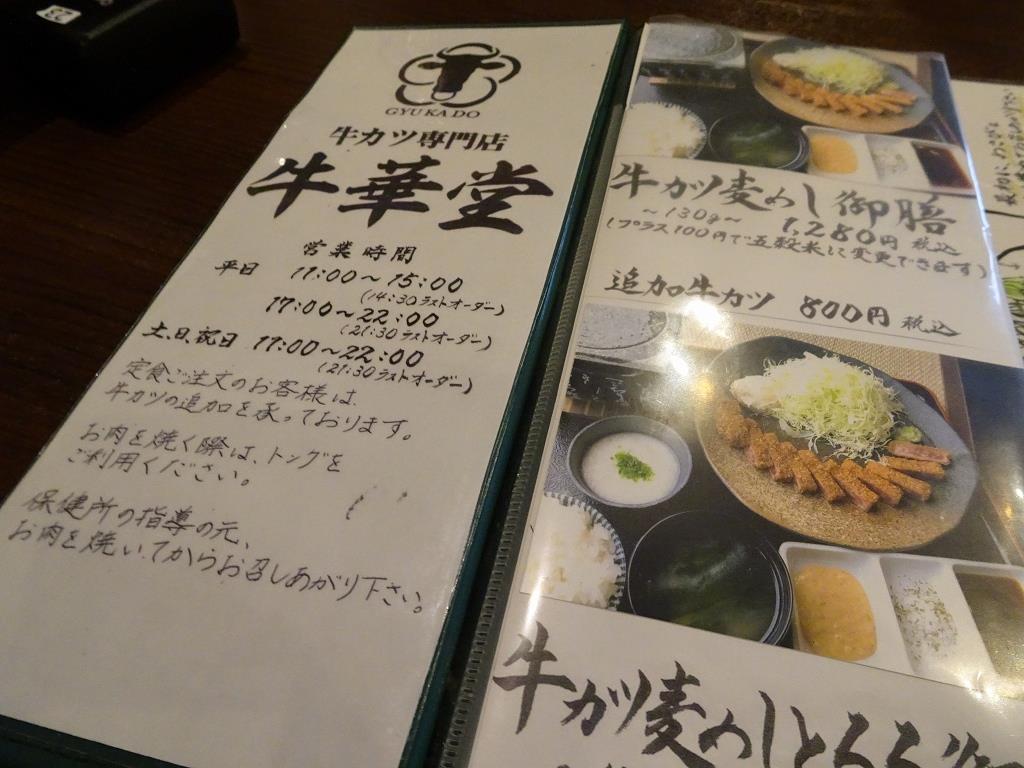 23
GYUKADO
牛カツ専門店
牛華堂
営業時間
平日 11:00～15:00
(14:30ラストオーダー)
17:00～22:00
(21:30ラストオーダー)
土、日、祝日 11:00～22:00
(21:30ラストオーダー)
定食ご注文のお客様は
牛カツの追加を承っております。
お肉を焼く際は、トングを
ご利用ください。
保健所の指導の元、
お肉を焼いてからお召しあがり下さい。
牛カツ麦めし御膳
～130g～ 1,280円 税込
(プラス100円で五穀米に変更できます)
追加牛カツ 800円 税込
牛カツ麦めしとろろ御